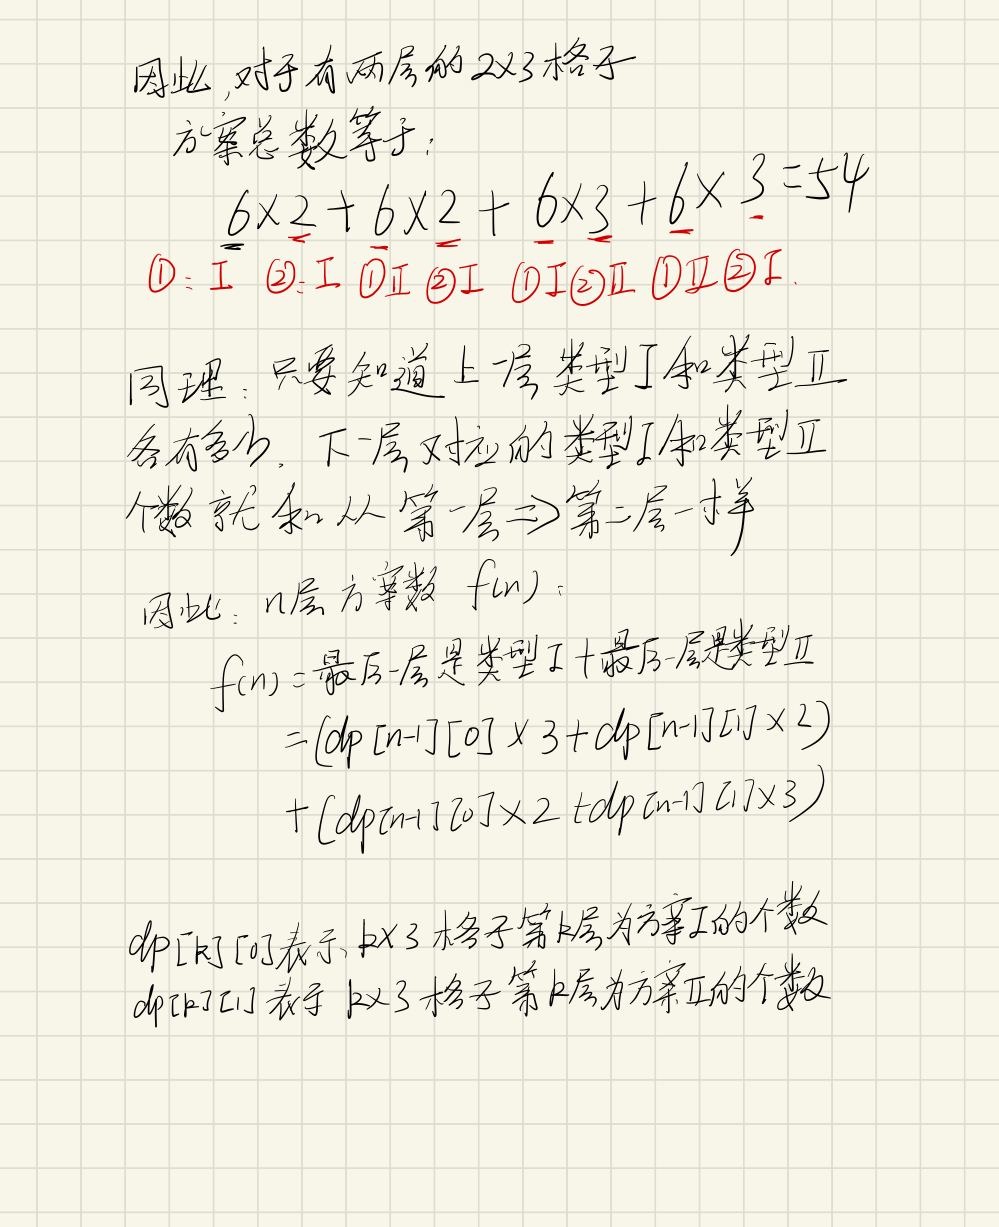 因此,对于有两层的2X3格子
方案总数等于:
6X2+6X2+6X3+6X3=54
①:I ②:I ①II ②I ①I②II ①II②I.
同理:只要知道上一层类型I和类型II
各有多少,下一层对应的类型I和类型II
个数就和从第一层=>第二层一样
因此:n层方案数 f(n):
f(n)=最后一层是类型I+最后一层是类型II
=(dp[n-1][0]X3+dp[n-1][1]X2)
+(dp[n-1][0]X2+dp[n-1][1]X3)
dp[k][0]表示kX3格子第k层为方案I的个数
dp[k][1]表示kX3格子第k层为方案II的个数